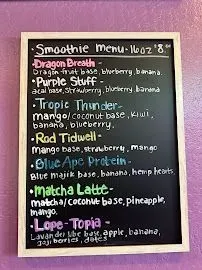 ·Smoothie Menu·16oz $8
·Dragon Breath-
Dragon fruit base, blueberry, banana.
·Purple Stuff-
acai base, strawberry, blueberry, banana
·Tropic Thunder-
mango/coconut base, kiwi,
banana, blueberry.
·Rad Tidwell-
Mango base, strawberry, mango
·Blue Ape Protein-
Blue majik base, banana, hemp hearts,
·Matcha Latte-
matcha/coconut base, pineapple,
mango.
·Lope-Topia-
Lavander base, apple, banana,
goji berries, dates